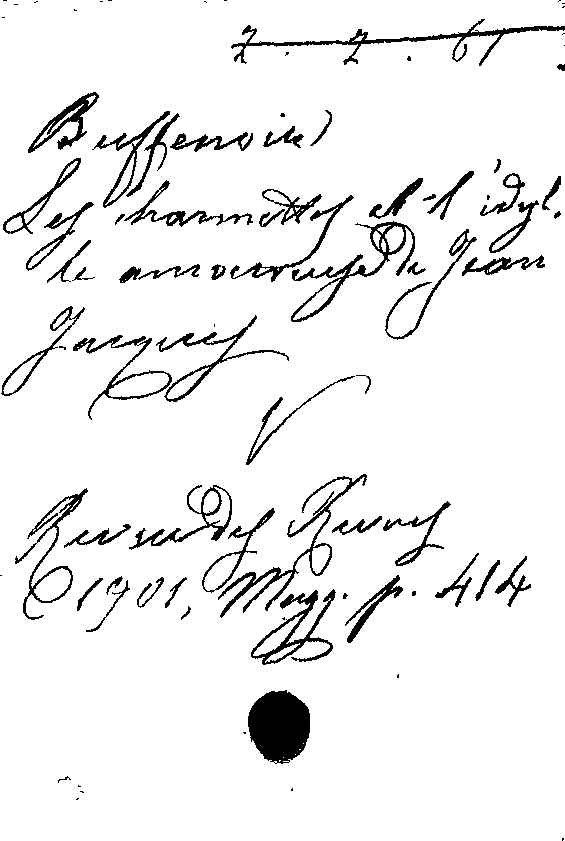 2. 2. 61
Buffenoir)
Les charmettes et l'idyl.
le amoureuse de Jean
Jacques
V
Revue des Revues
1901, Magg. p. 414